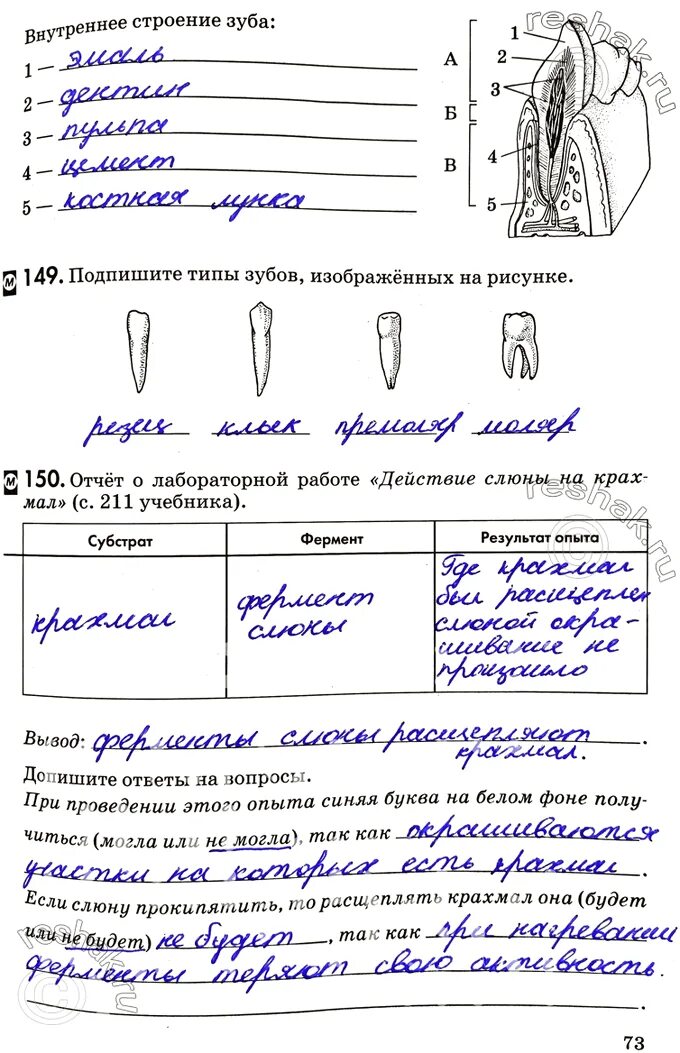 Внутреннее строение зуба:
1 — эмаль
2 — дентин
3 — пульпа
4 — цемент
5 — костная лунка
А
Б
В
1
2
3
4
5
м 149. Подпишите типы зубов, изображённых на рисунке.
резец клык премоляр моляр
м 150. Отчёт о лабораторной работе «Действие слюны на крах-
мал» (с. 211 учебника).
Субстрат Фермент Результат опыта
крахмал
фермент
слюны
Где крахмал
был расщеплен
слюной окра-
шивание не
произошло
Вывод: ферменты слюны расщепляют
крахмал.
Допишите ответы на вопросы.
При проведении этого опыта синяя буква на белом фоне полу-
читься (могла или не могла), так как окрашиваются
участки на которых есть крахмал.
Если слюну прокипятить, то расщеплять крахмал она (будет
или не будет) не будет, так как при нагревании
ферменты теряют свою активность.
73
reshak.ru
reshak.ru
reshak.ru